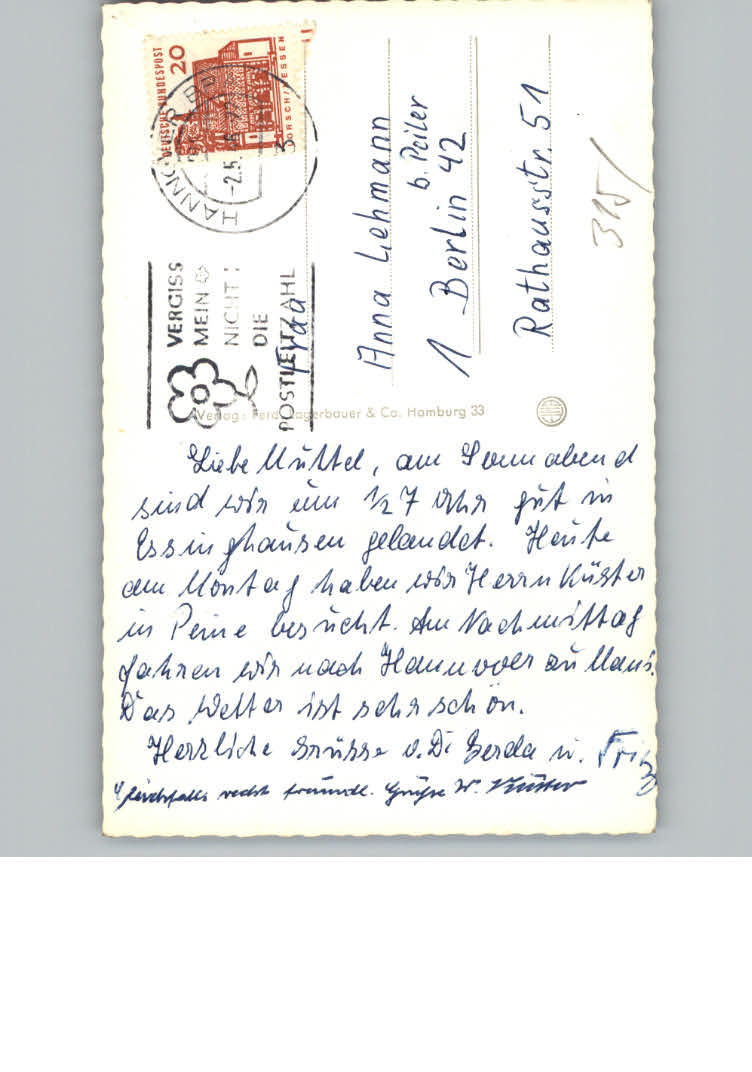 DEUTSCHE BUNDESPOST
20
LORSCH/HESSEN
HANNOVER
-2.5.
VERGISS
MEIN
NICHT
DIE
POSTLEITZAHL
Frau
Anna Lehmann
b. Peiler
1 Berlin 42
Rathausstr. 51
315/
Verlag: Ferd. Lagerbauer & Co. Hamburg 33
Liebe Muttel, am Sonnabend
sind wir um ½ 7 Uhr gut in
Essinghausen gelandet. Heute
am Montag haben wir Herrn Küster
in Peine besucht. Am Nachmittag
fahren wir nach Hannover zu Hans.
Das Wetter ist sehr schön.
Herzliche Grüsse v. Di Gerda u. Fritz
Gleichfalls recht freundl. Grüße W. Küster